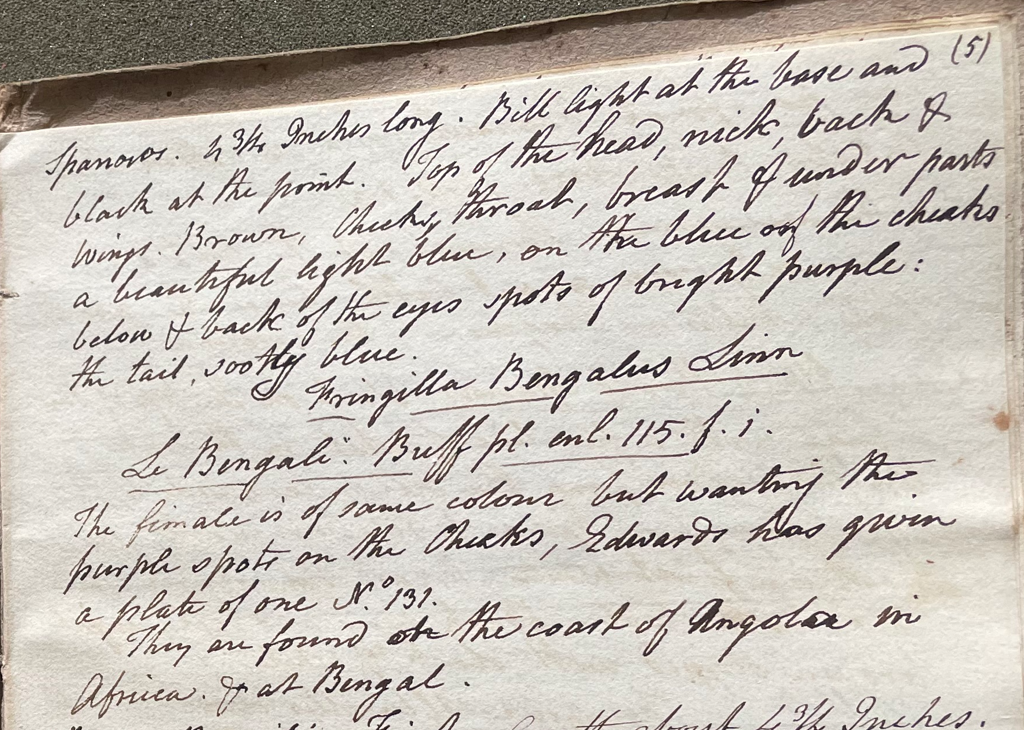 (5)
Sparrows. 4 3/4 Inches long. Bill light at the base and
black at the point. Top of the head, nick, back &
wings. Brown, Cheeks, throat, breast & under parts
a beautiful light blue, on the blue of the cheaks
below & back of the eyes spots of bright purple:
the tail, sootly blue.
Fringilla Bengalus Linn
Le Bengali. Buff pl. enl. 115. f. 1.
The fimale is of same colour but wanting the
purple spots on the Cheaks, Edwards has givin
a plate of one No. 131.
They are found the coast of Angola in
Africa. & at Bengal.
about 4 3/4 Inches.